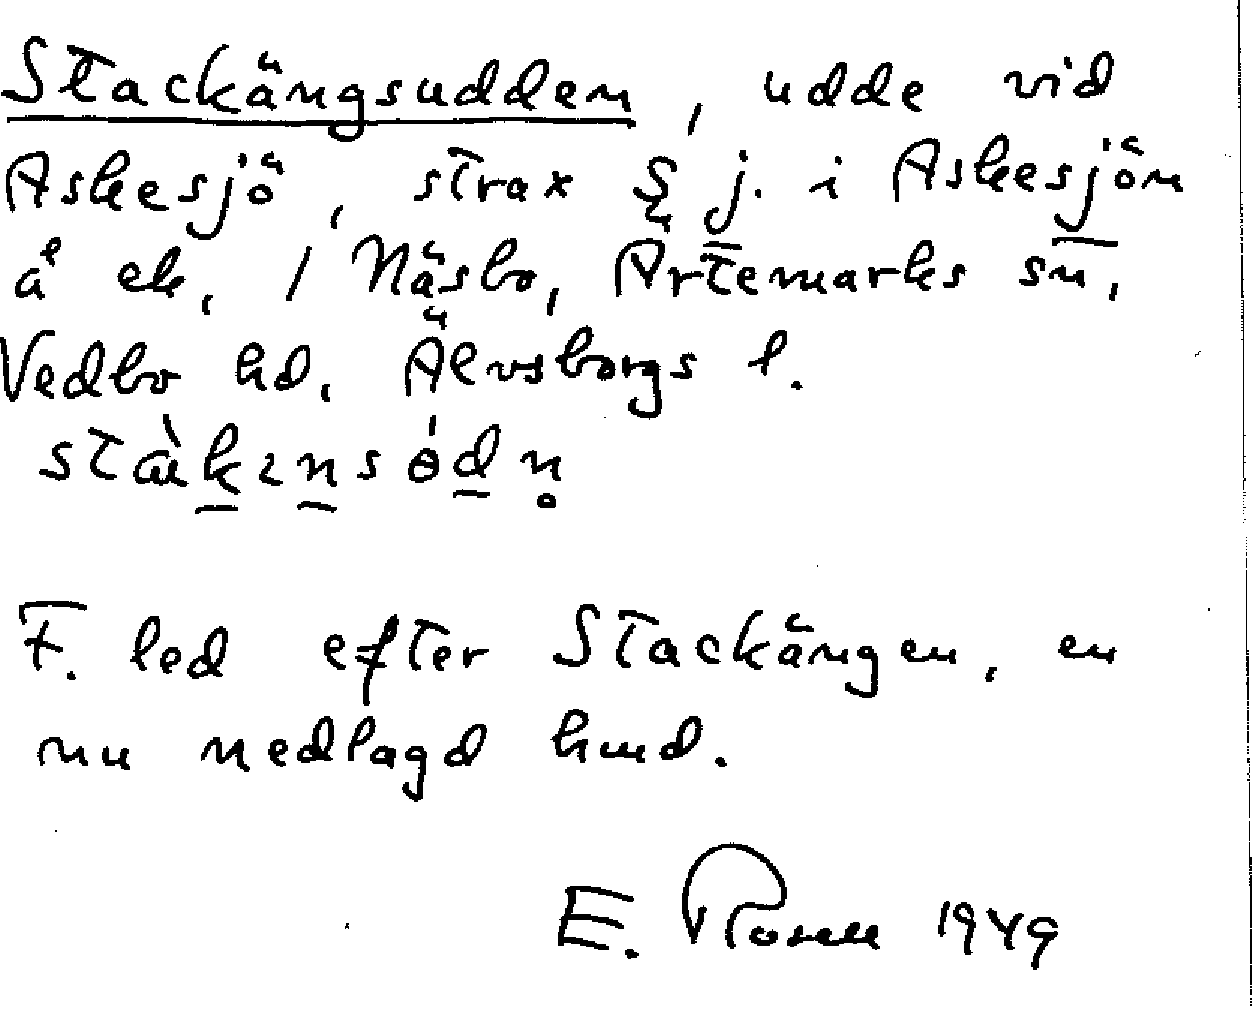 Stackängsudden, udde vid
Askesjö, strax S j. i Askesjön
å ek, / Näsbo, Ärtemarks sn,
Vedbo hd, Älvsborgs l.
F. led efter Stackängen, en
nu nedlagd hmd.
E. Rosell 1949